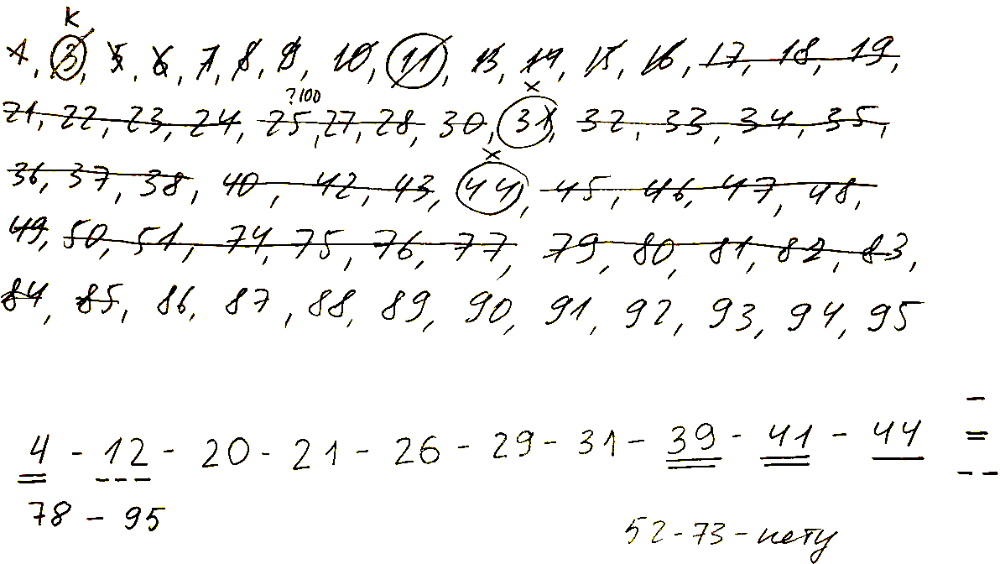 К
1, 3, 5, 6, 7, 8, 9, 10, 11, 13, 14, 15, 16, 17, 18, 19,
?100 х
21, 22, 23, 24, 25, 27, 28, 30, 31, 32, 33, 34, 35,
х
36, 37, 38, 40, 42, 43, 44, 45, 46, 47, 48,
49, 50, 51, 74, 75, 76, 77, 79, 80, 81, 82, 83,
84, 85, 86, 87, 88, 89, 90, 91, 92, 93, 94, 95
4 - 12 - 20 - 21 - 26 - 29 - 31 - 39 - 41 - 44
78 - 95
52 - 73 - нету